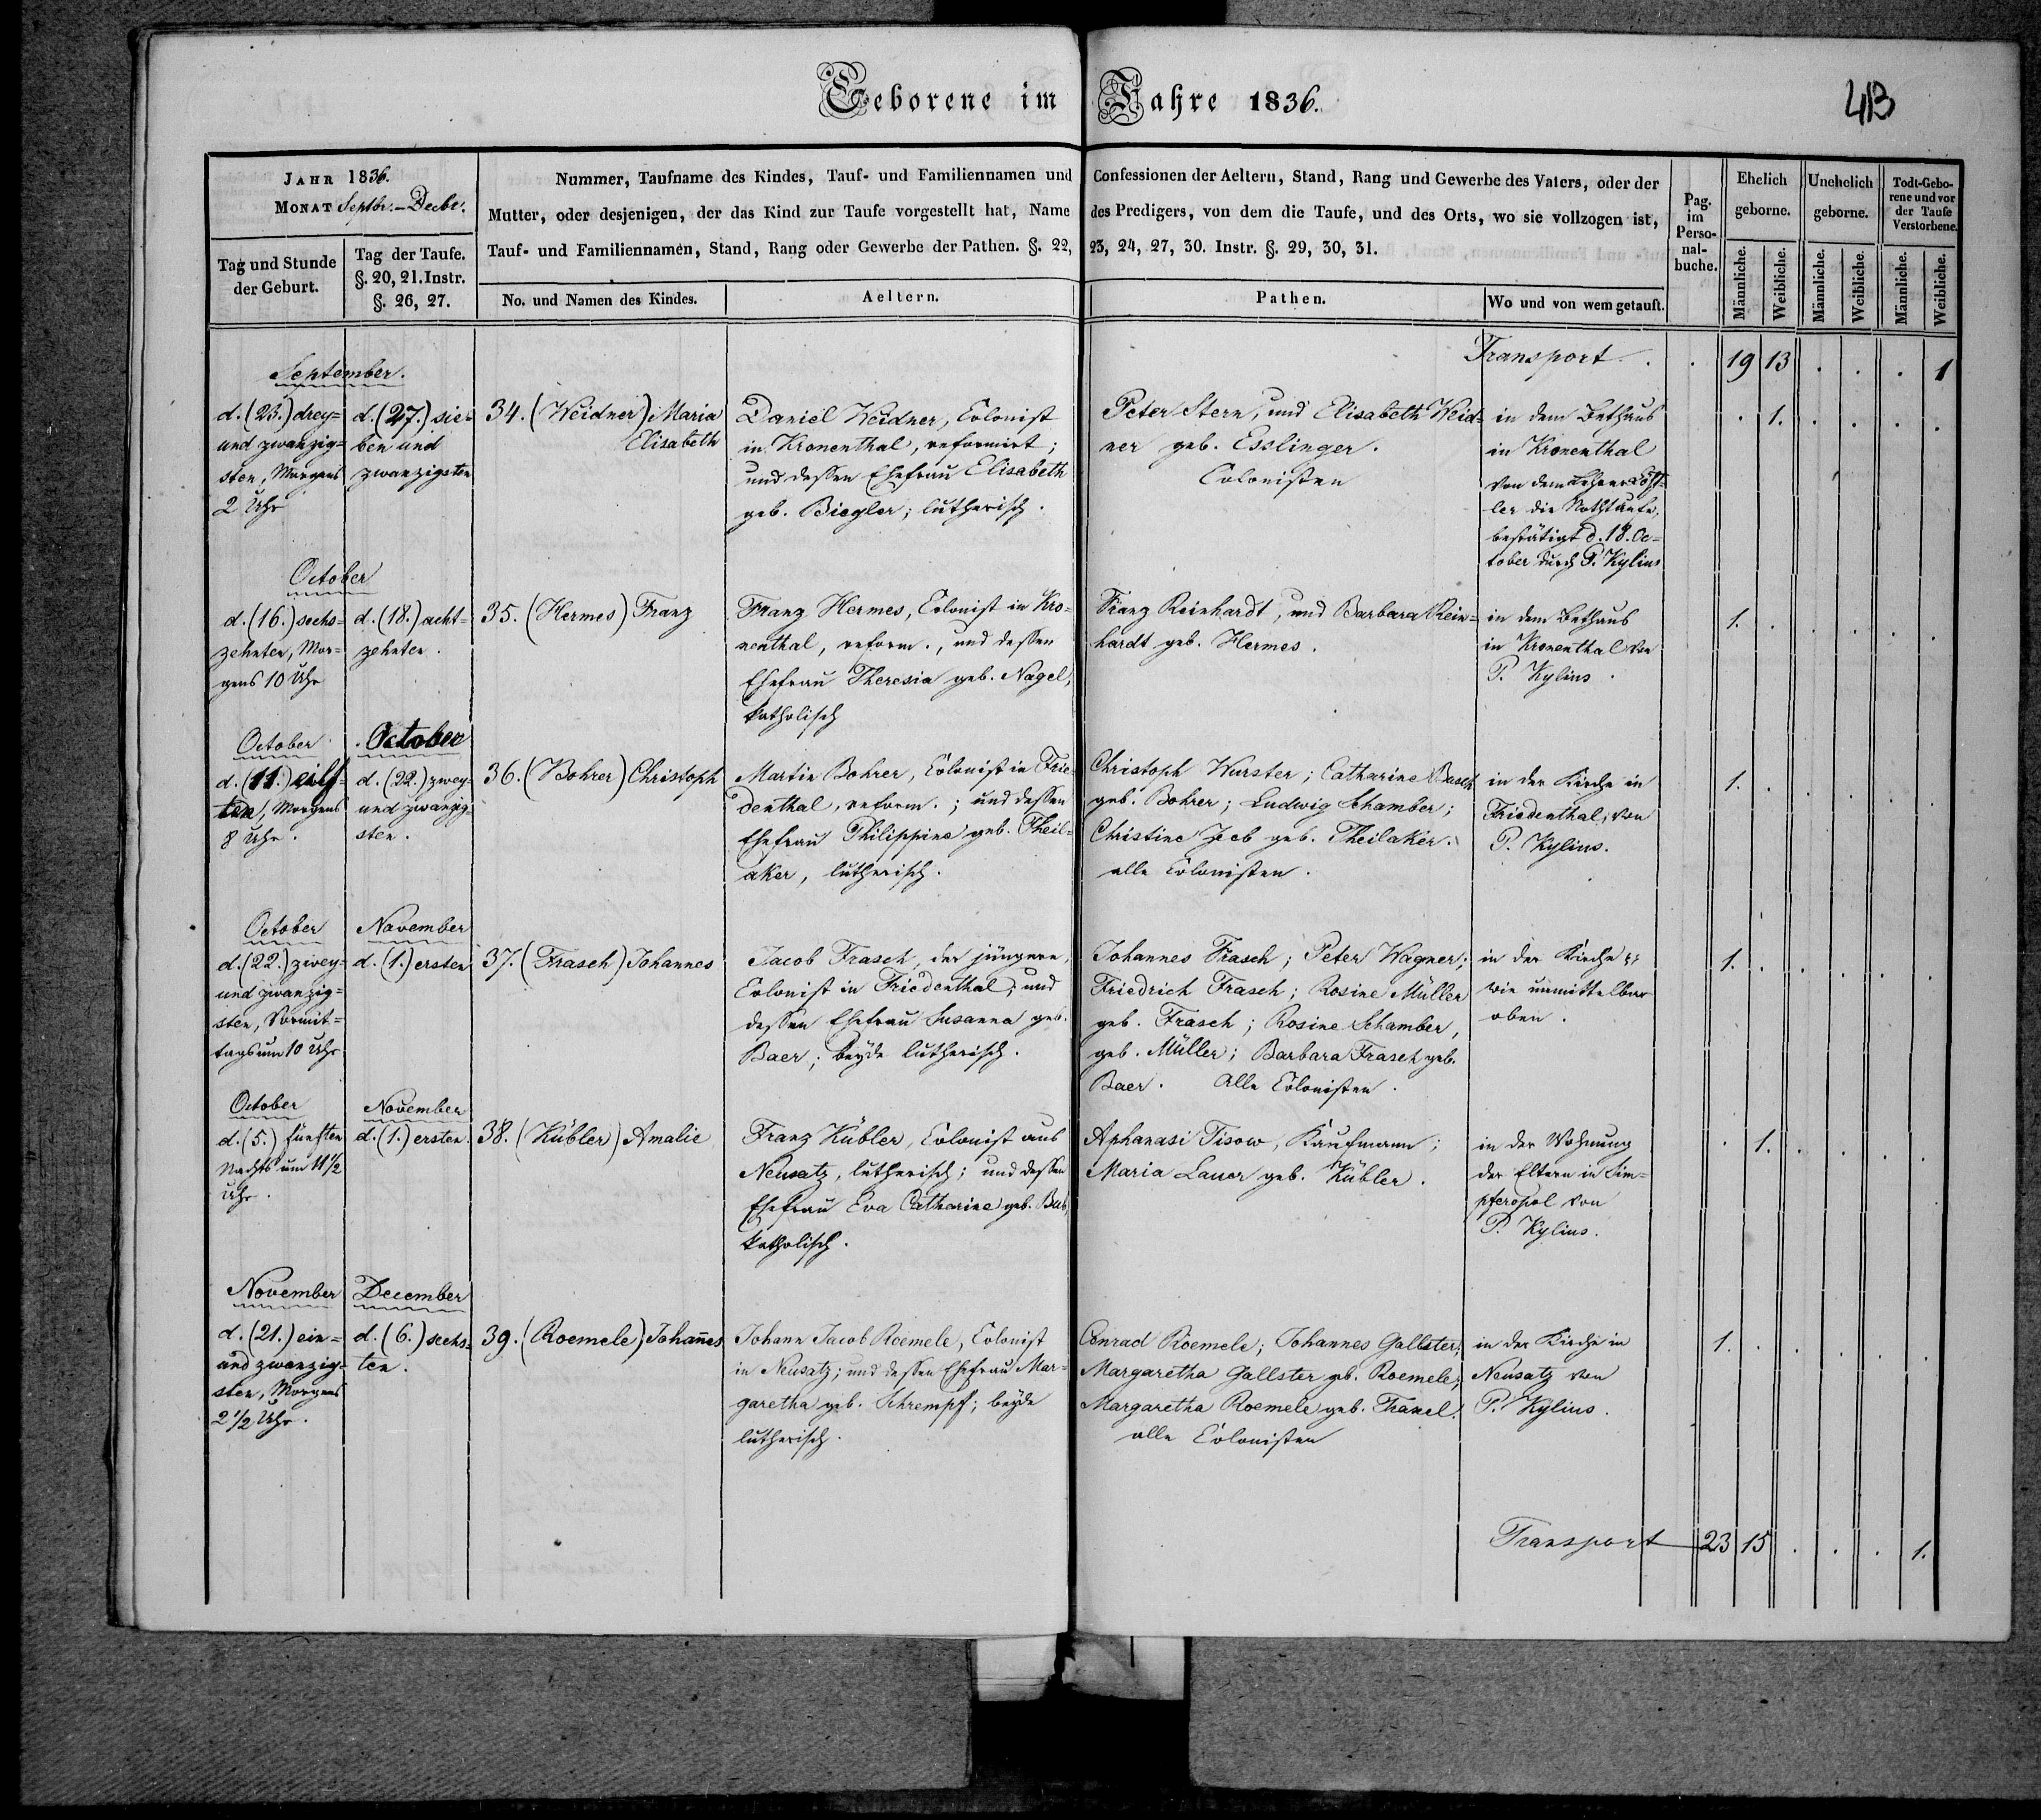 Geborene im Jahre 1836.
413
JAHR 1836.
MONAT Septbr. – Decbr.
Tag und Stunde
der Geburt.
Tag der Taufe.
§. 20, 21. Instr.
§. 26, 27.
Nummer, Taufname des Kindes, Tauf- und Familiennamen und Confessionen der Aeltern, Stand, Rang und Gewerbe des Vaters, oder der
Mutter, oder desjenigen, der das Kind zur Taufe vorgestellt hat, Name des Predigers, von dem die Taufe, und des Orts, wo sie vollzogen ist,
Tauf- und Familiennamen, Stand, Rang oder Gewerbe der Pathen. §. 22, 23, 24, 27, 30. Instr. §. 29, 30, 31.
No. und Namen des Kindes.
Aeltern.
Pathen.
Wo und von wem getauft.
Pag.
im
Perso-
nal-
buche.
Ehelich
geborne.
Unehelich
geborne.
Todt-Gebo-
rene und vor
der Taufe
Verstorbene.
Männliche.
Weibliche.
Männliche.
Weibliche.
Männliche.
Weibliche.
Transport . . 19 13 . . . 1
September.
d. (23.) drey=
und zwanzig=
sten, Morgens
2 Uhr
d. (27.) sie=
ben und
zwanzigsten
34. (Weidner) Maria
Elisabeth
Daniel Weidner, Colonist
in Kronenthal, reformirt;
und dessen Ehefrau Elisabeth
geb. Biegler; lutherisch.
Peter Stern, und Elisabeth Weid=
ner geb. Esslinger.
Colonisten
in dem Bethaus
in Kronenthal
von dem Lehrer
ler die Nothtaufe,
bestätigt d. 18. Oc=
tober durch P. Kylius
. 1. . . . .
October
d. (16.) sechs=
zehnten, Mor=
gens 10 Uhr
d. (18.) acht=
zehnten.
35. (Hermes) Franz
Franz Hermes, Colonist in Kro=
nenthal, reform., und dessen
Ehefrau Theresia geb. Nagel,
katholisch
Franz Reinhardt, und Barbara Rein=
hardt geb. Hermes.
in dem Bethaus
in Kronenthal von
P. Kylius.
1. . . . . .
October
d. (11.) eilf=
ten, Morgens
8 Uhr.
October
d. (22.) zwey=
und zwanzig=
sten.
36. (Bohrer) Christoph
Martin Bohrer, Colonist in Frie=
denthal, reform.; und dessen
Ehefrau Philippine geb. Theil=
aker, lutherisch.
Christoph Wurster; Catharine Basch
geb. Bohrer; Ludwig Schamber;
Christine Jeeb geb. Theilaker.
alle Colonisten.
in der Kirche in
Friedenthal, von
P. Kylius.
1. . . . . .
October
d. (22.) zwey=
und zwanzig=
sten, Vormit=
tags um 10 Uhr
November
d. (1.) ersten
37. (Frasch) Johannes
Jacob Frasch, der jüngere,
Colonist in Friedenthal, und
dessen Ehefrau Susanna geb.
Baer; beyde lutherisch.
Johannes Frasch; Peter Wagner;
Friedrich Frasch; Rosine Müller
geb. Frasch; Rosine Schamber,
geb. Müller; Barbara Frasch geb.
Baer. Alle Colonisten.
in der Kirche
wie unmittelbar
oben.
1. . . . . .
October
d. (5.) fünften
Nachts um 11 1/2
Uhr.
November
d. (1.) ersten.
38. (Kübler) Amalie
Franz Kübler, Colonist aus
Neusatz, lutherisch; und dessen
Ehefrau Eva Catharine geb.
katholisch.
Aphanasi Tisow, Kaufmann;
Maria Lauer geb. Kübler.
in der Wohnung
der Eltern in Sim=
pferopol von
P. Kylius.
. 1. . . . .
November
d. (21.) ein=
und zwanzig=
sten, Morgens
2 1/2 Uhr.
December
d. (6.) sechs=
ten.
39. (Roemele) Johannes
Johann Jacob Roemele, Colonist
in Neusatz; und dessen Ehefrau Mar=
garetha geb. Schrempf; beyde
lutherisch.
Conrad Roemele; Johannes Gallster;
Margaretha Gallster geb. Roemele;
Margaretha Roemele geb.
alle Colonisten
in der Kirche in
Neusatz von
P. Kylius.
1. . . . . .
Transport 23 15 . . . 1.